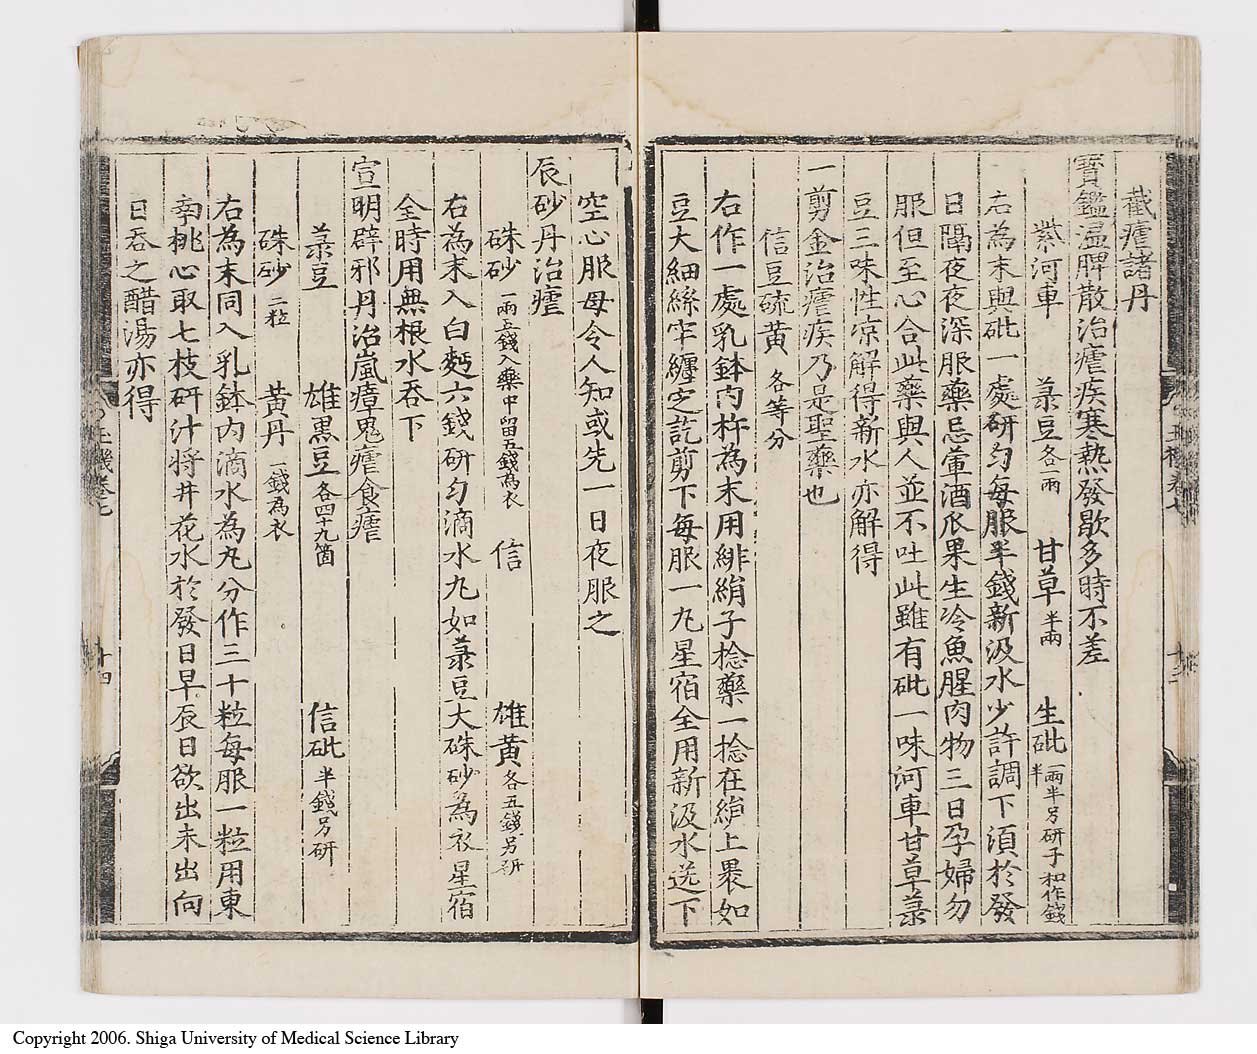 截瘧諸丹
寶鑑温脾散治瘧疾寒熱發歇多時不差
紫河車 菉豆各一兩 甘草半兩 生砒一兩半另研子和作錢半
右為末與砒一處研匀每服半錢新汲水少許調下須於發
日隔夜夜深服藥忌葷酒瓜果生冷魚腥肉物三日孕婦勿
服但至心合此藥與人並不吐此雖有砒一味河車甘草菉
豆三味性凉解得新水亦解得
一剪金治瘧疾乃是聖藥也
信豆硫黄各等分
右作一處乳鉢内杵為末用緋絹子捻藥一捻在絹上褁如
豆大細絲牢纏定訖剪下每服一丸星宿全用新汲水送下
空心服毋令人知或先一日夜服之
辰砂丹治瘧
硃砂一兩五錢入藥中留五錢為衣 信 雄黄各五錢另研
右為末入白麫六錢研匀滴水丸如菉豆大硃砂為衣星宿
全時用無根水吞下
宣明辟邪丹治嵐瘴鬼瘧食瘧
菉豆 雄黒豆各四十九箇 信砒半錢另研
硃砂二粒 黄丹一錢為衣
右為末同入乳鉢内滴水為丸分作三十粒每服一粒用東
南桃心取七枝研汁将井花水於發日早辰日欲出未出向
日吞之醋湯亦得
十四
Copyright 2006. Shiga University of Medical Science Library